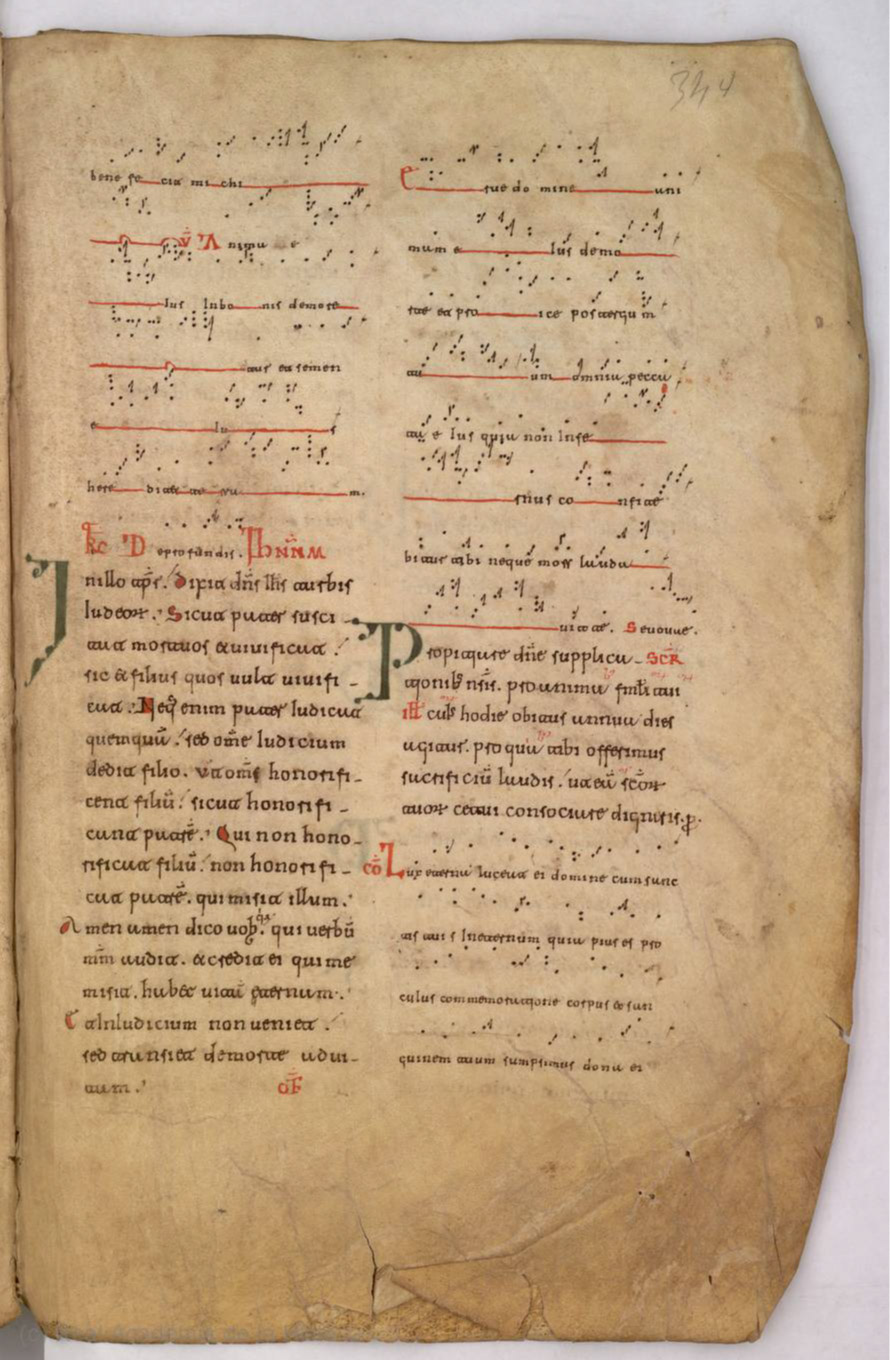 bene fe cit mi chi
V Anima e
ius Inbo nis demore
tur et semen
e iu s
here ditet ter ram.
RC De profundis. IhNNM
In illo tpr. Dixit dns ihs turbis
iudeor. Sicut pater susci-
tat mortuos et uiuificat
sic et filius quos uult uiuifi-
cat. Neq enim pater iudicat
quemquā. sed ome iudicium
dedit filio. ut oms honorifi-
cent filiū. sicut honorifi-
cant patrē. Qui non hono-
rificat filiū. non honorifi-
cat patrē. qui misit illum.
Amen amen dico uob. qui uerbū
mm audit. et credit ei qui me
misit. habet uitā eternum.
Et Iniudicium non ueniet.
sed transiet demorte adui-
tam. OF
Erue do mine ani
mam e ius demo
rte et pro ice postergum
tu um omnia pecca
ta e ius quia non Infe
rnus co nfite
bitur tibi neque mors lauda
uit te. Seuouae.
Propitiare dne supplica- SCR
tionib nris. pro animam fmli tui
ill cuius hodie obitus annua dies
agitur. pro qua tibi offerimus
sacrificiū laudis. ut eū scor
tuor cetui consociare digneris. p.
CO Lux eterna luceat ei domine cum sanc
tis tuis Ineternum quia pius es pro
cuius commemoratione corpus et san
guinem tuum sumpsimus dona ei